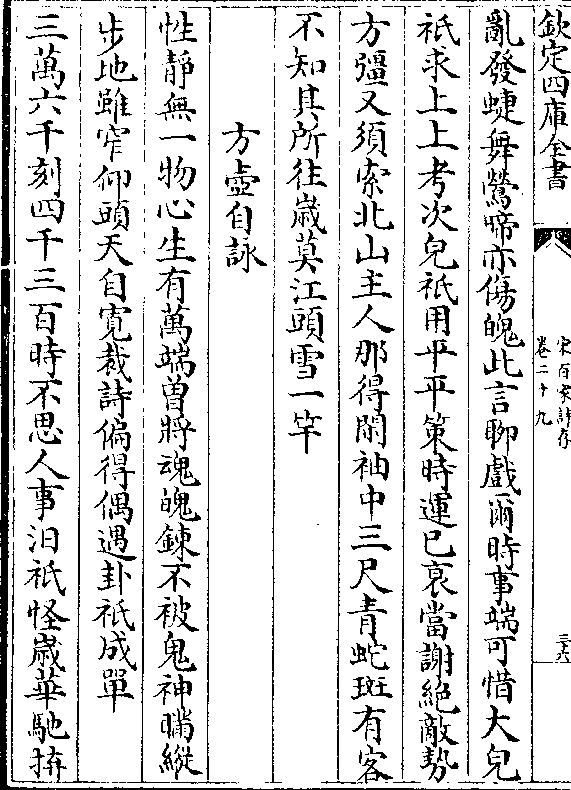 欽定四庫全書
宋百家詩存
卷二十九
三十六
亂發蜨舞鶯啼亦傷魄此言聊戲爾時事端可惜大兒
祇求上上考次兒祇用平平策時運已衰當謝絶敵勢
方彊又須索北山主人那得閑袖中三尺青蛇斑有客
不知其所往歲莫江頭雪一竿
方壺自詠
性靜無一物心生有萬端曾將魂魄鍊不被鬼神瞞縱
步地雖窄仰頭天自寛裁詩偏得偶遇卦祇成單
三萬六千刻四千三百時不思人事汨祇怪歲華馳拚